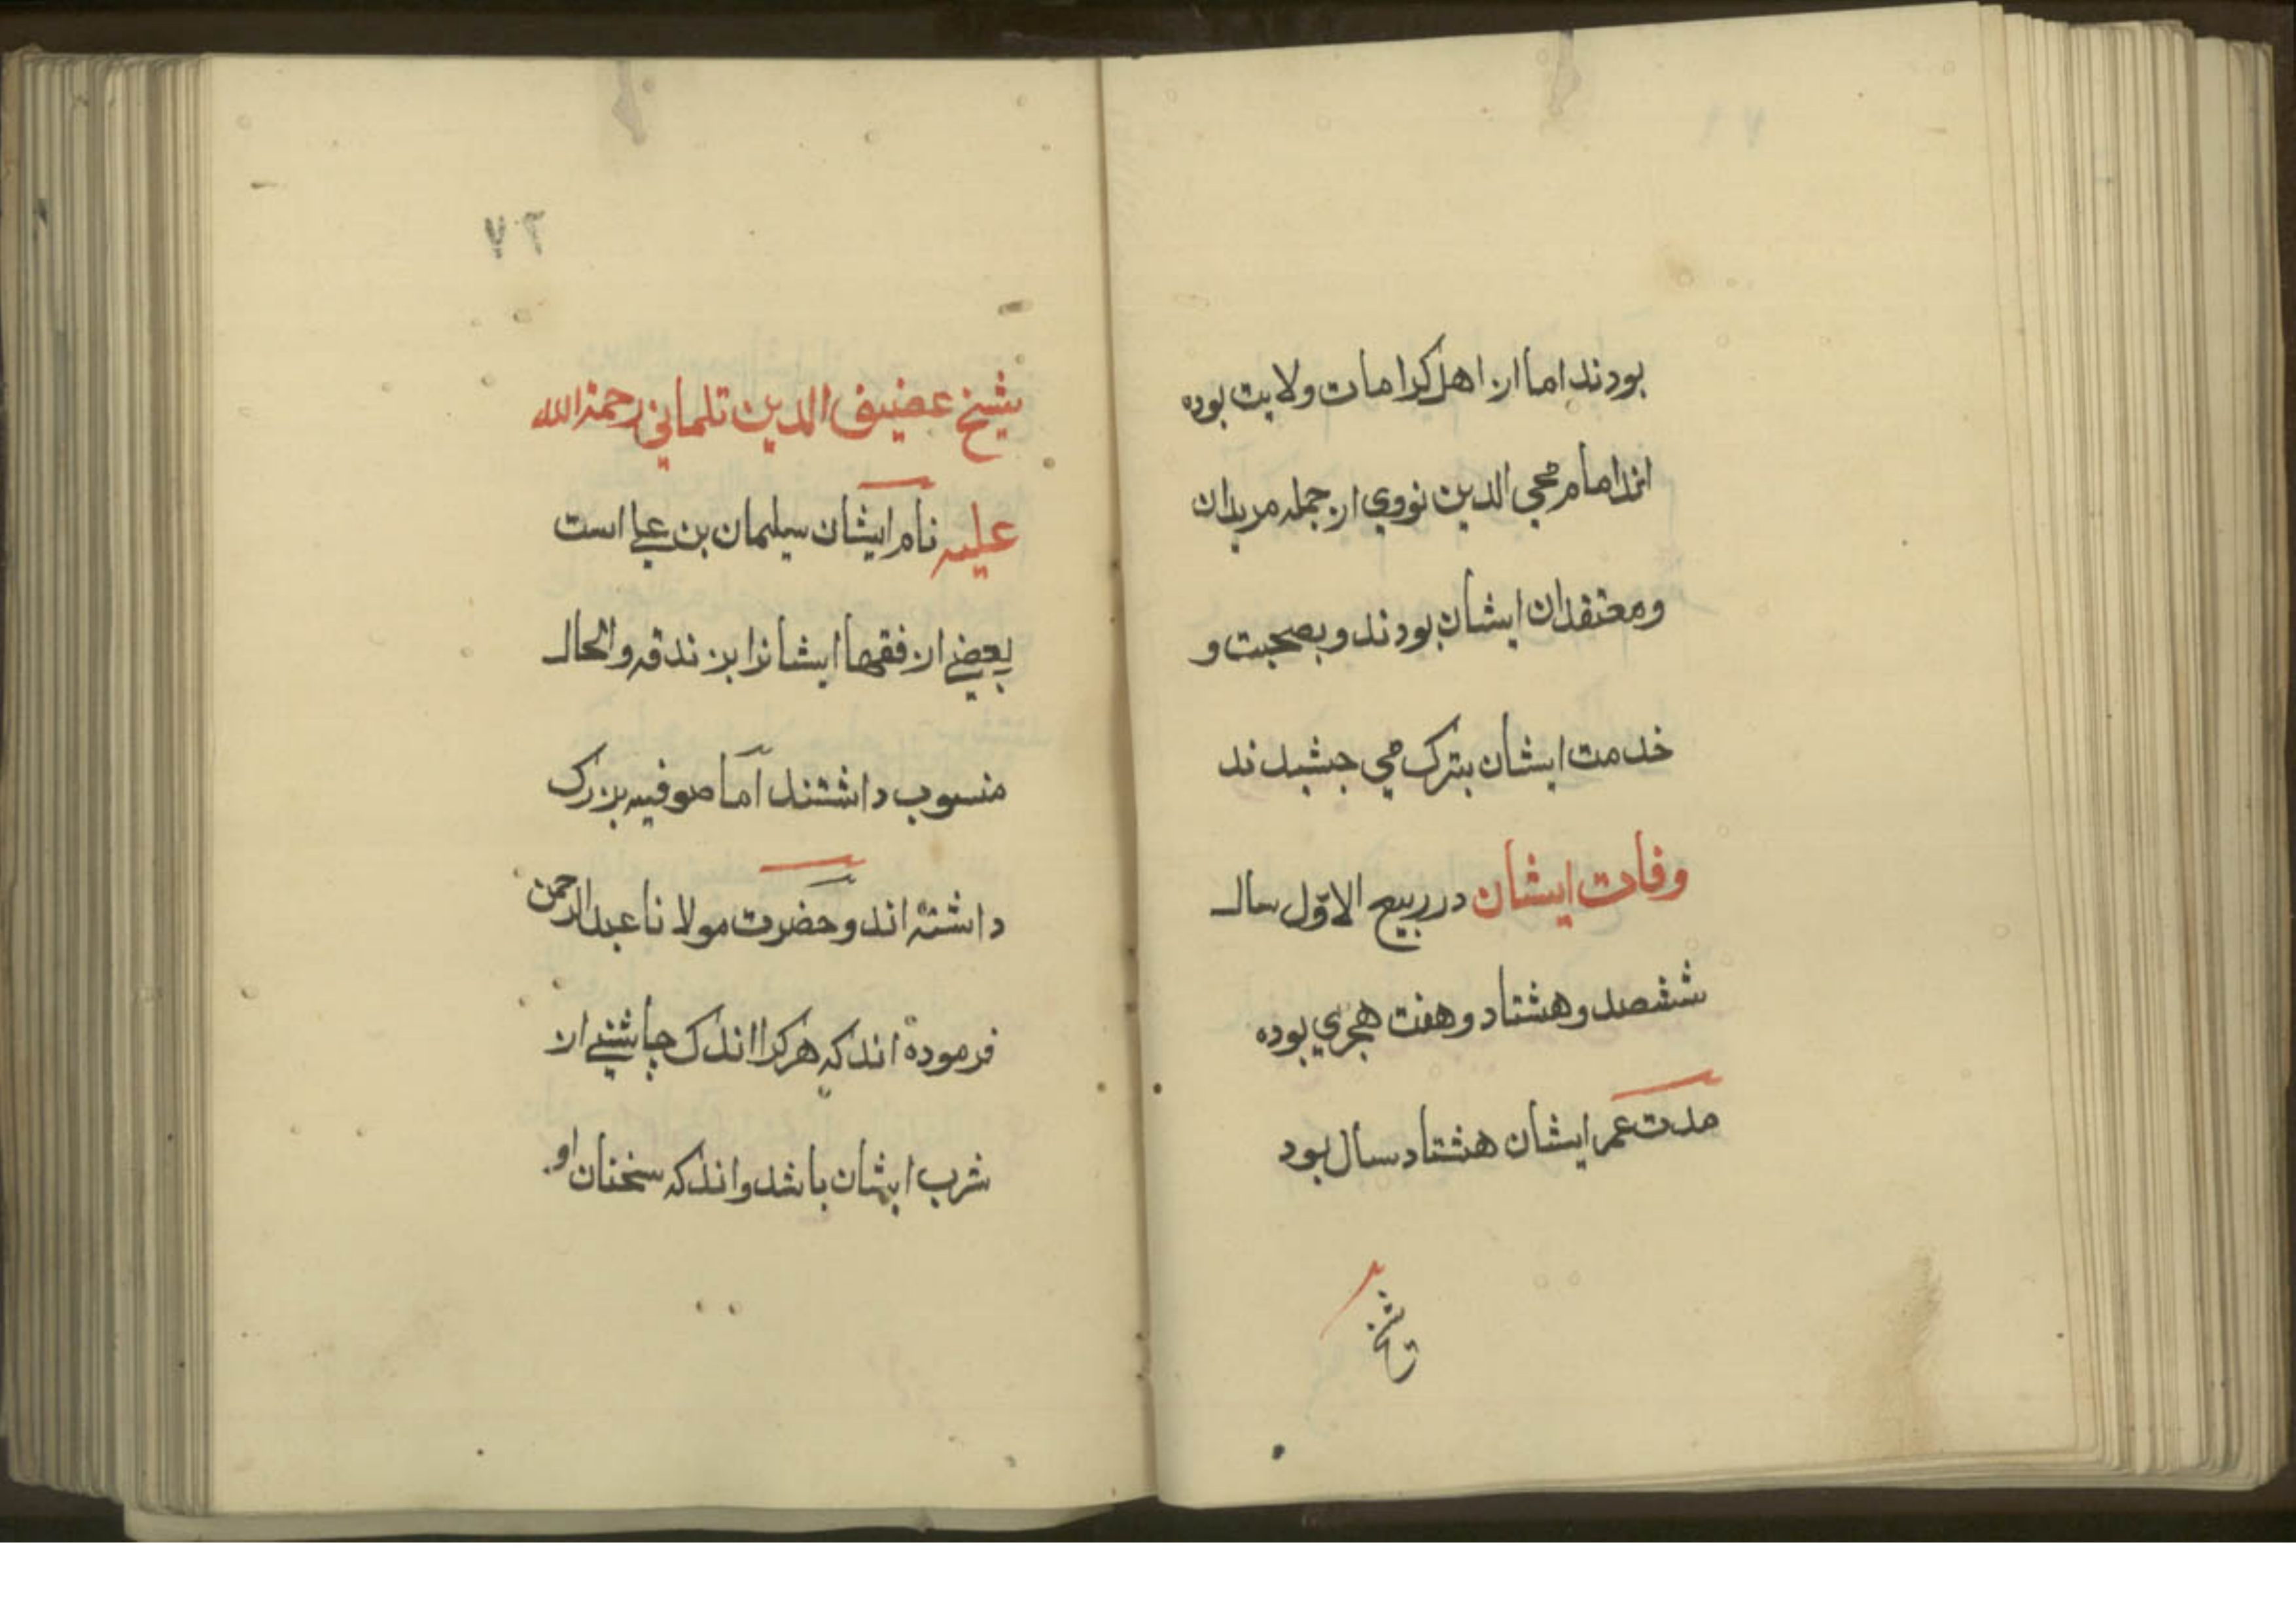 بودند اما از اهل کرامات ولایت بوده
اند امام محي الدین نووي از جمله مریدان
ومعتقدان ایشان بودند و بصحبت و
خدمت ایشان بترک مي جشیدند
وفات ایشان در ربیع الاوّل سال
ششصد و هشتاد و هفت هجري بوده
مدت عمر ایشان هشتاد سال بود
شیخ
۷۲
شیخ عضیف الدین تلماني رحمة الله
علیه نام ایشان سیلمان بن علے است
بعضے از فقها ایشانرا بزندقه والحال
منسوب داشتند آما صوفیه بزرک
داشته اند و حضرت مولانا عبدالرحمن
فرموده اند که هرکرا اندک چاشنے از
شرب ایشان باشد واند که سخنان او